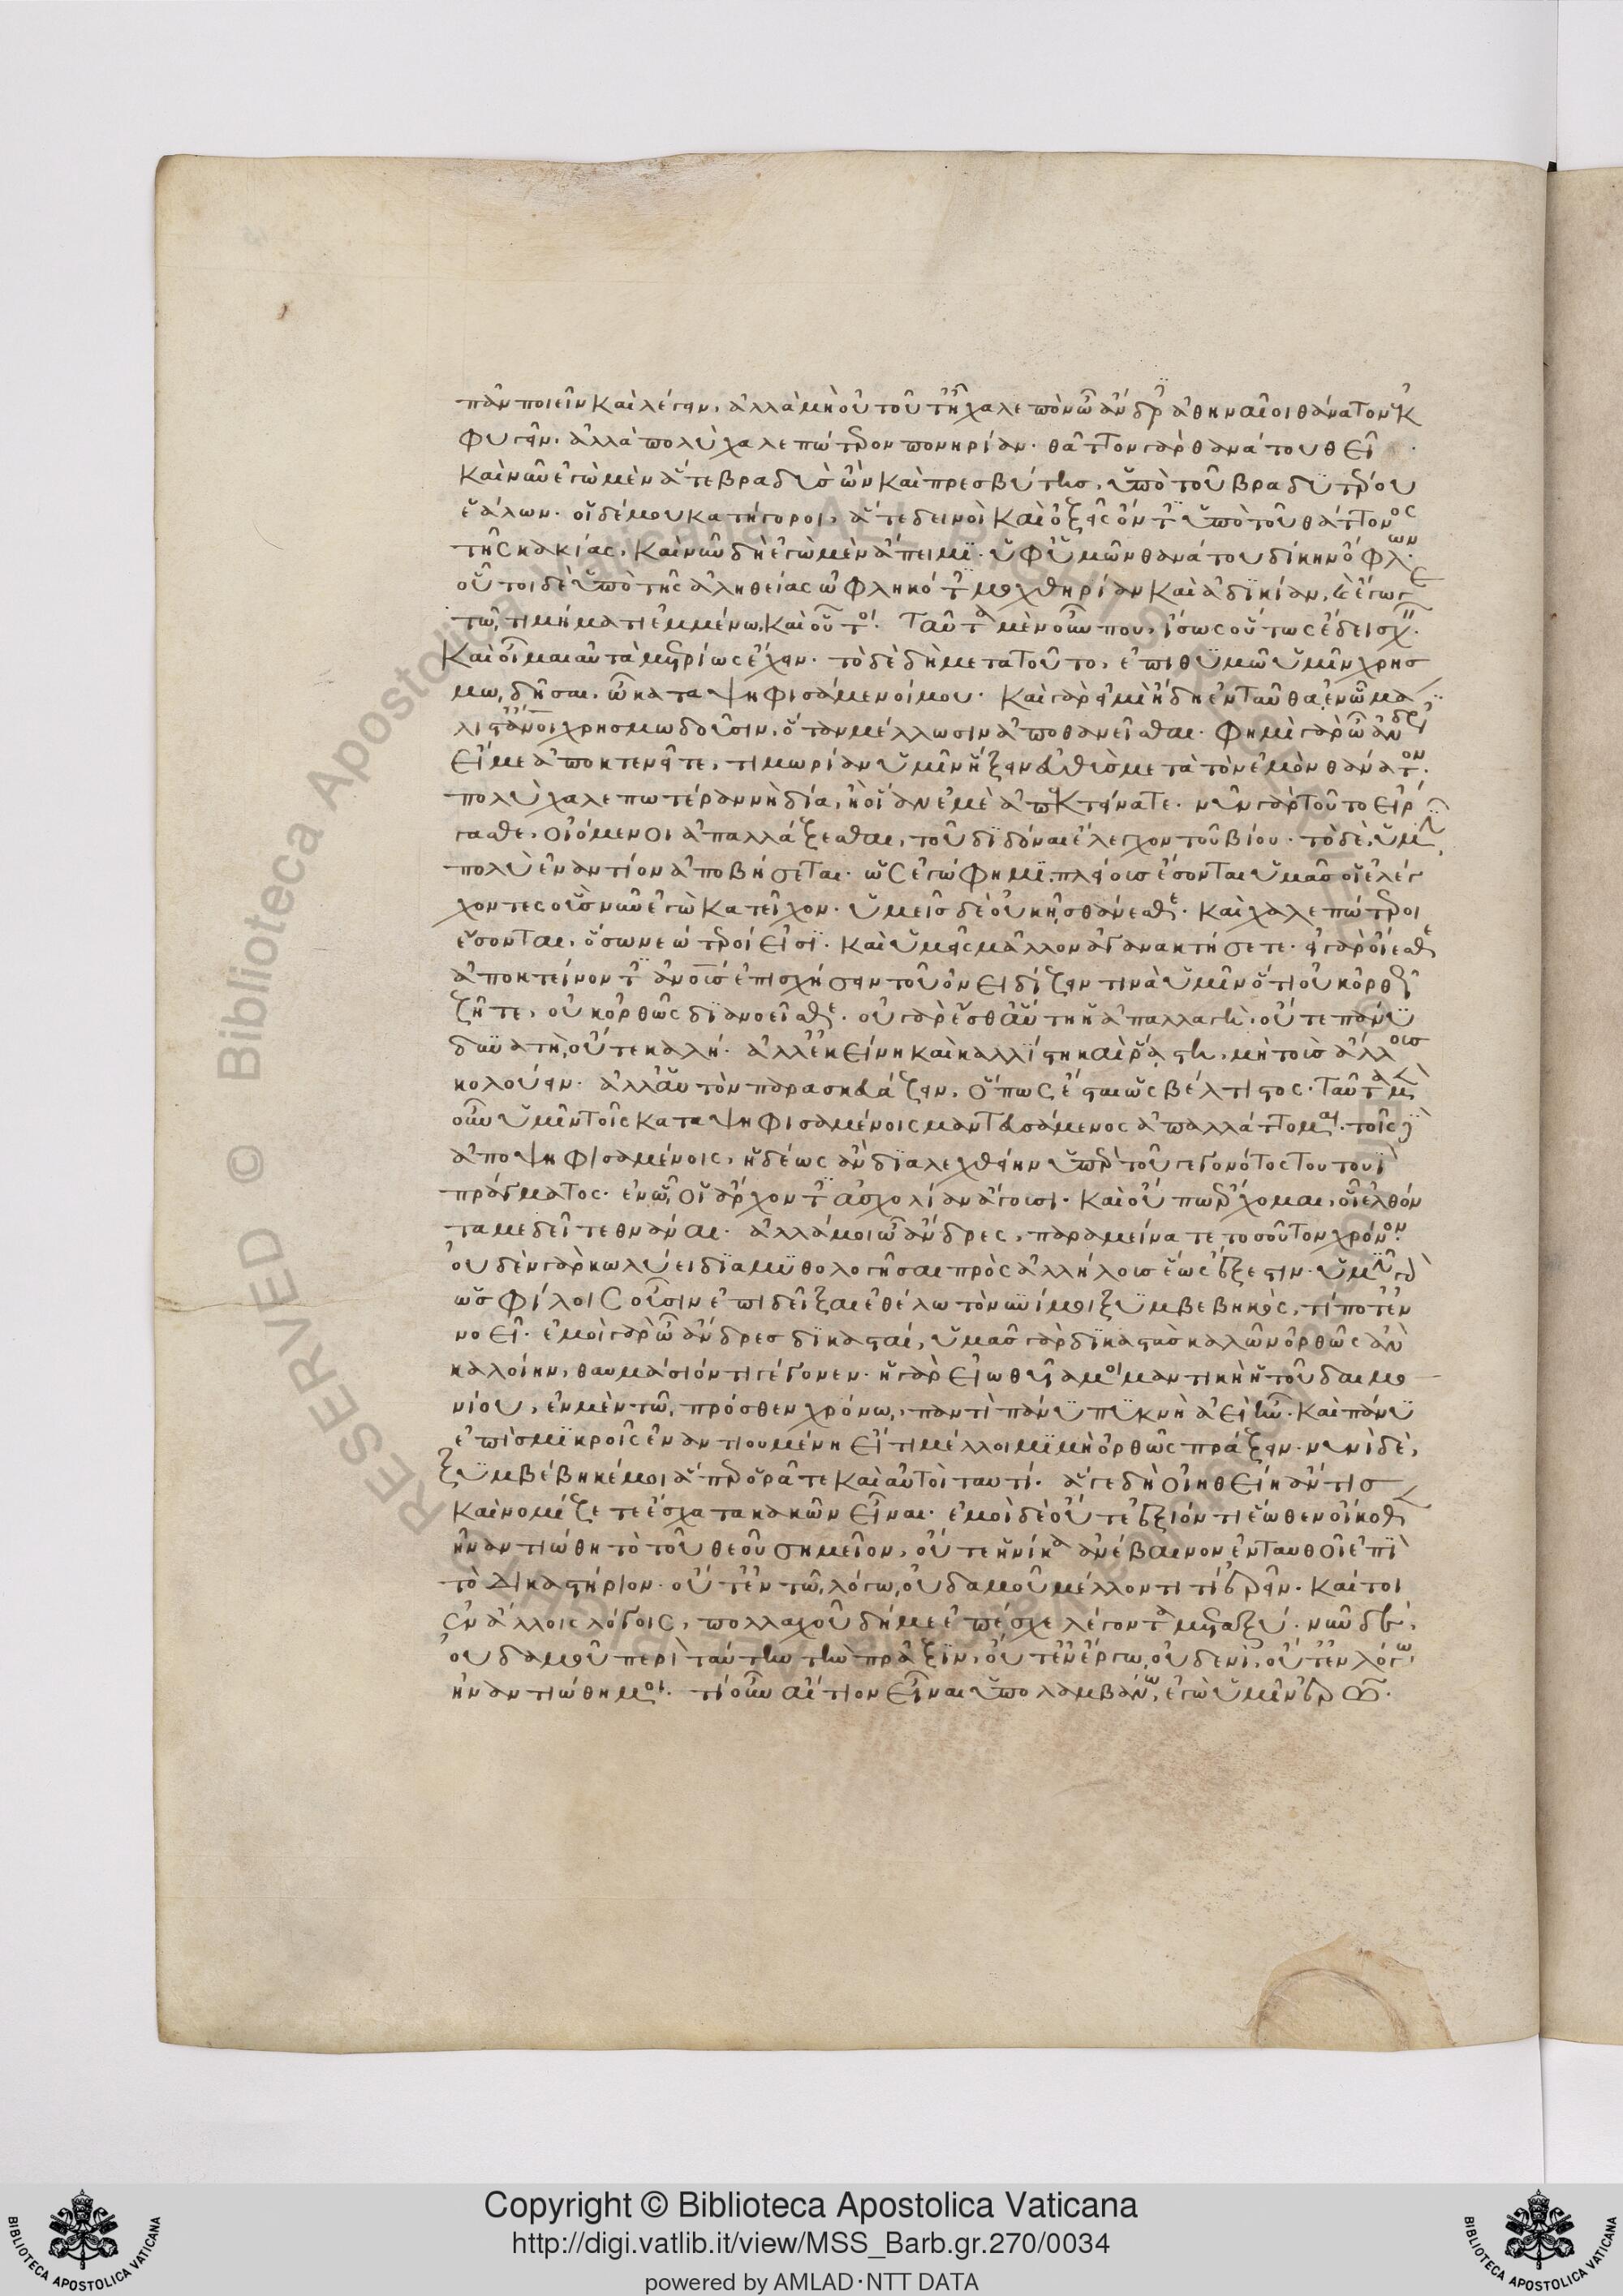 πᾶν ποιεῖν καὶ λέγειν. ἀλλὰ μὴ οὐ τοῦτ' ᾖ χαλεπὸν ὦ ἄνδρ ἀθηναῖοι θάνατον ἐκ
φυγεῖν. ἀλλὰ πολὺ χαλεπώτερον πονηρίαν. θᾶττον γὰρ θανάτου θεῖ.
καὶ νῦν ἐγὼ μὲν ἅτε βραδὺς ὢν καὶ πρεσβύτης, ὑπὸ τοῦ βραδυτέρου
ἑάλων. οἱ δέ μου κατήγοροι, ἅτε δεινοὶ καὶ ὀξεῖς ὄντ ὑπὸ τοῦ θάττονος
τῆς κακίας. καὶ νῦν δὴ ἐγὼ μὲν ἄπειμι ὑφ' ὑμῶν θανάτου δίκην ὄφλων.
οὗτοι δὲ ὑπὸ τῆς ἀληθείας ὠφληκότ μοχθηρίαν καὶ ἀδικίαν. καὶ ἔγωγε
τῷ τιμήματι ἐμμένω, καὶ οὗτοι. ταῦτα μὲν οὖν που, ἴσως οὕτως ἔδει σχ.
καὶ οἶμαι αὐτὰ μετρίως ἔχειν. τὸ δὲ δὴ μετὰ τοῦτο, ἐπιθυμῶ ὑμῖν χρησ
μῳδῆσαι, ὦ καταψηφισάμενοί μου. καὶ γάρ εἰμι ἤδη ἐνταῦθα ἐν ᾧ μά
λιστ' ἄνοι χρησμῳδοῦσιν, ὅταν μέλλωσιν ἀποθανεῖσθαι. φημὶ γὰρ ὦ ἄνδρ
εἴ με ἀποκτενεῖτε, τιμωρίαν ὑμῖν ἥξειν εὐθὺς μετὰ τὸν ἐμὸν θάνατον.
πολὺ χαλεπωτέραν νὴ δία, ἢ οἵαν ἐμὲ ἀπεκτείνατε. νῦν γὰρ τοῦτο εἰρ
γασθε, οἰόμενοι ἀπαλλάξεσθαι, τοῦ διδόναι ἔλεγχον τοῦ βίου. τὸ δὲ, ὑμῖν
πολὺ ἐναντίον ἀποβήσεται. ὡς ἐγώ φημι. πλείους ἔσονται ὑμᾶς οἱ ἐλέγ
χοντες οὓς νῦν ἐγὼ κατεῖχον. ὑμεῖς δὲ οὐκ ᾐσθάνεσθε. καὶ χαλεπώτεροι
ἔσονται, ὅσῳ νεώτεροί εἰσι. καὶ ὑμεῖς μᾶλλον ἀγανακτήσετε. εἰ γὰρ οἴεσθε
ἀποκτείνοντ ἀνους ἐπισχήσειν τοῦ ὀνειδίζειν τινὰ ὑμῖν ὅτι οὐκ ὀρθ
ζῆτε, οὐκ ὀρθῶς διανοεῖσθε. οὐ γὰρ ἔσθ' αὕτη ἡ ἀπαλλαγὴ, οὔτε πάνυ
δυνατὴ, οὔτε καλή. ἀλλ' ἐκείνη καὶ καλλίστη καὶ ῥᾴστη, μὴ τοὺς ἄλλους
κολούειν. ἀλλ' αὑτὸν παρασκευάζειν, ὅπως ἔσται ὡς βέλτιστος. ταῦτα μὲν
οὖν ὑμῖν τοῖς καταψηφισαμένοις μαντευσάμενος ἀπαλλάττομαι. τοῖς δὲ
ἀποψηφισαμένοις, ἡδέως ἂν διαλεχθείην ὑπὲρ τοῦ γεγονότος τουτουῒ
πράγματος. ἐν ᾧ, οἱ ἄρχοντ ἀσχολίαν ἄγουσι. καὶ οὔπω ἔρχομαι, οἷ ἐλθόν
τα με δεῖ τεθνάναι. ἀλλά μοι ὦ ἄνδρες, παραμείνατε τοσοῦτον χρόνον.
οὐδὲν γὰρ κωλύει διαμυθολογῆσαι πρὸς ἀλλήλους ἕως ἔξεστιν. ὑμῖν γὰρ
ὡς φίλοις οὖσιν ἐπιδεῖξαι ἐθέλω τὸ νυνί μοι ξυμβεβηκὸς, τί ποτ' ἐν
νοεῖ. ἐμοὶ γὰρ ὦ ἄνδρες δικασταί, ὑμᾶς γὰρ δικαστὰς καλῶν ὀρθῶς ἂν
καλοίην, θαυμάσιόν τι γέγονεν. ἡ γὰρ εἰωθυῖά μοι μαντικὴ ἡ τοῦ δαιμο
νίου, ἐν μὲν τῷ πρόσθεν χρόνῳ, παντὶ πάνυ πυκνὴ ἀεὶ ἦν. καὶ πάνυ
ἐπὶ σμικροῖς ἐναντιουμένη εἴ τι μέλλοιμι μὴ ὀρθῶς πράξειν. νυνὶ δὲ,
ξυμβέβηκέ μοι ἅπερ ὁρᾶτε καὶ αὐτοὶ ταυτί. ἅ γε δὴ οἰηθείη ἄν τις
καὶ νομίζεται ἔσχατα κακῶν εἶναι. ἐμοὶ δὲ οὔτε ἐξιόντι ἕωθεν οἴκοθ
ἠναντιώθη τὸ τοῦ θεοῦ σημεῖον, οὔτε ἡνίκα ἀνέβαινον ἐνταυθοῖ ἐπὶ
τὸ δικαστήριον. οὔτ' ἐν τῷ λόγῳ, οὐδαμοῦ μέλλοντί τι ἐρεῖν. καίτοι
ἐν ἄλλοις λόγοις, πολλαχοῦ δή με ἐπέσχε λέγοντα μεταξύ. νῦν δὲ,
οὐδαμοῦ περὶ ταύτην τὴν πρᾶξιν, οὔτ' ἐν ἔργῳ, οὐδενὶ, οὔτ' ἐν λόγῳ
ἠναντιώθη μοι. τί οὖν αἴτιον εἶναι ὑπολαμβάνω, ἐγὼ ὑμῖν ἐρῶ.
RESERVED © Biblioteca Apostolica Vaticana
Copyright © Biblioteca Apostolica Vaticana
http://digi.vatlib.it/view/MSS_Barb.gr.270/0034
powered by AMLAD·NTT DATA
BIBLIOTECA APOSTOLICA VATICANA
BIBLIOTECA APOSTOLICA VATICANA